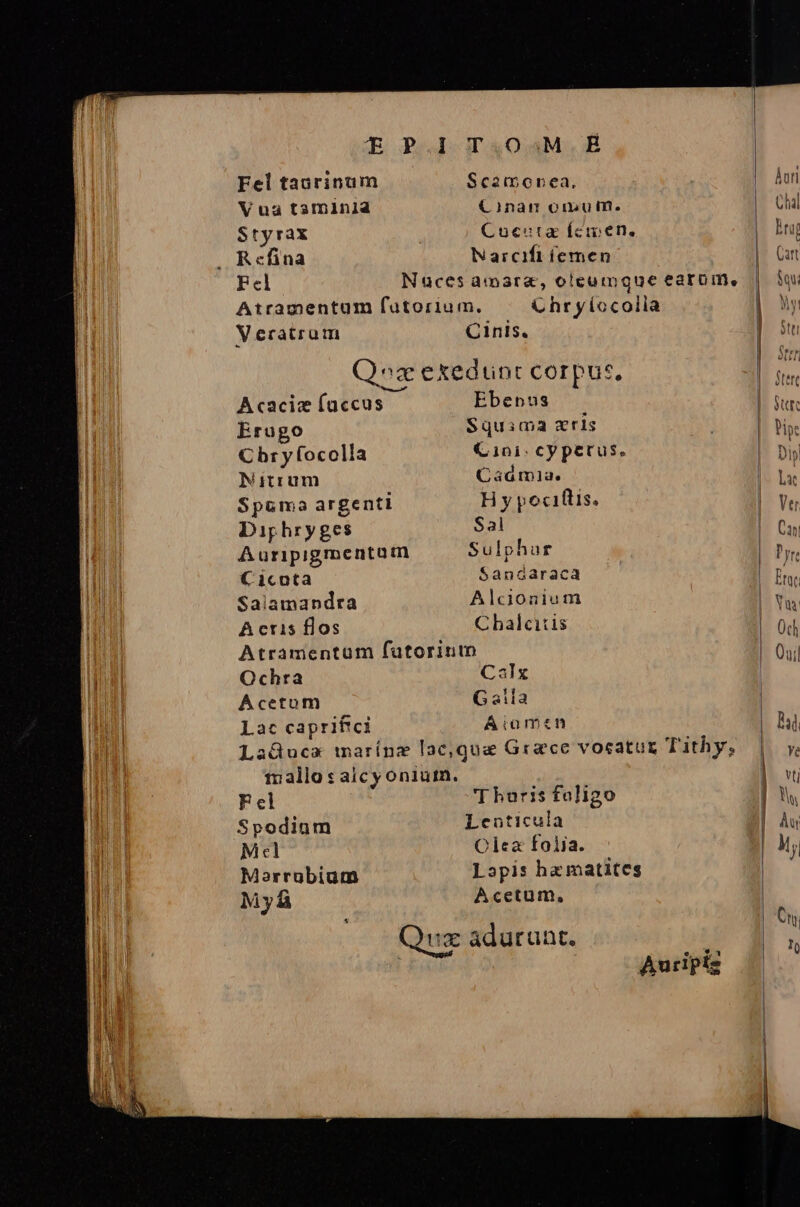 EPITOME
Fel taurinum Scamonea.
Vua taminia Cinamomum.
Styrax Cucutæ ſemen.
Reſina Narciſi ſemen
Fel Nuces amaræ, oleumque earum.
Atramentum ſutorium. Chryſocolla
Veratrum Cinis.
Quæ exedunt corpus.
Acaciæ ſuccus Ebenus
Erugo Squama æris
Chryſocolla Cini. cyperus.
Nitrum Cadmia.
Spuma argenti Hypociſtis.
Diphryges Sal
Auripigmentum Sulphur
Cicuta Sandaraca
Salamandra Alcionium
Aeris flos Chalcitis
Atramentum ſutorium
Ochra Calx
Acetum Galla
Lac caprifici Alumen
Lactucæ marinæ lac, quæ Græce vocatur Tithy-
mallos alcyonium.
Fel Thuris fuligo
Spodium Lenticula
Mel Oleæ folia.
Marrubium Lapis hæmatites
Myſi Acetum.
Quæ adurunt.
Auripig
Auri
Chal
Erug
Cart
Squ
My
Ster
Sterc
Sterc
Pipe
Dip
Lac
Ver
Can
Pyre
Eruc
Vua
Och
Oui
Rad
ve
vtj
Au